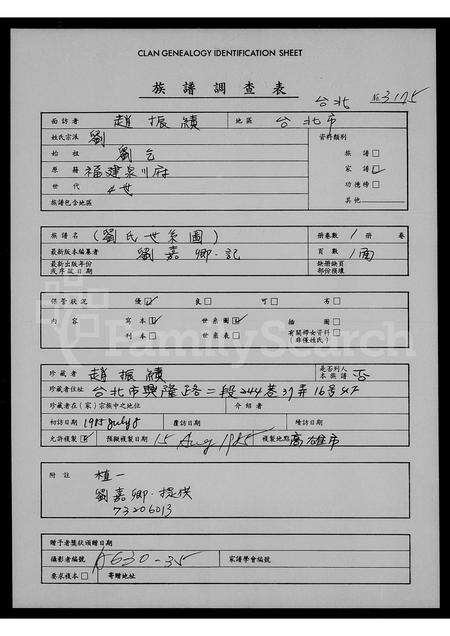 CLAN GENEALOGY IDENTIFICATION SHEET
族譜調查表
台北 3175
面訪者 趙振績 地區 台北市
姓氏宗派 劉 資料類別
始祖 劉 族譜□
原籍 福建泉州府 家譜☑
世代 4世 功德榜□
族譜包含地區 其他
族譜名 (劉氏世系圖) 冊卷數 1 冊 卷
最新版本編纂者 劉嘉卿.記 頁數 1面
最新出版年份或序跋日期 缺冊缺頁部份損壞
保管狀況 優☑ 良□ 可□ 布□
內容 寫本☑ 世系圖☑ 插圖□
刊本□ 世系表□ 有關婦女資料□(非僅姓氏)
珍藏者 趙振績 是否列入本族譜 否
珍藏者住址 台北市興隆路二段244巷37弄16号4F
珍藏者在(家)宗族中之地位 介紹者
初訪日期 1985 July 8 覆訪日期 續訪日期
允許複製☑ 預擬複製日期 15 Aug 1985 複製地點 高雄市
附註 植一
劉嘉卿.提供
73206013
贈予者獎狀頒贈日期
攝影者編號 A630-35 家譜學會編號
要求複本□ 寄贈地址
FamilySearch